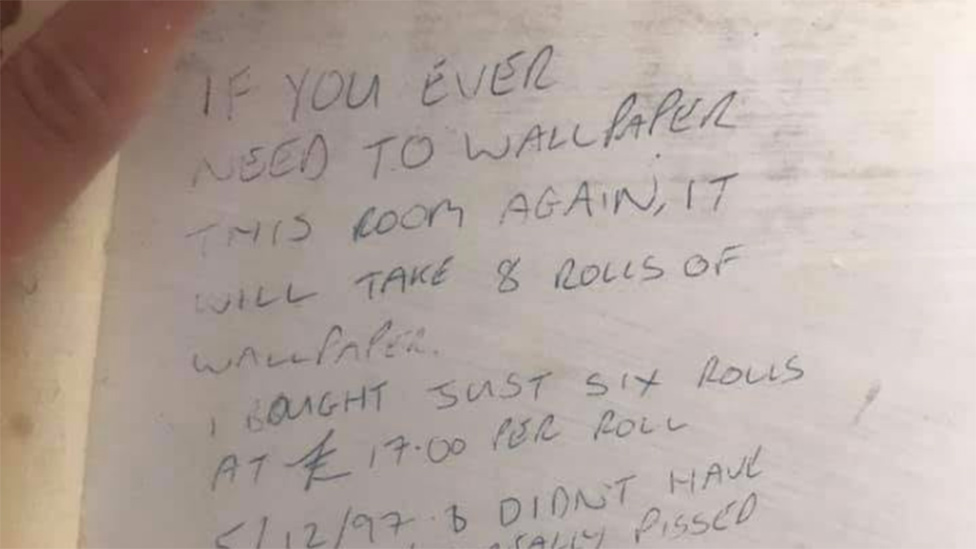 IF YOU EVER
NEED TO WALLPAPER
THIS ROOM AGAIN, IT
WILL TAKE 8 ROLLS OF
WALLPAPER.
I BOUGHT JUST SIX ROLLS
AT £17.00 PER ROLL
5/12/97 & DIDN'T HAVE
PISSED